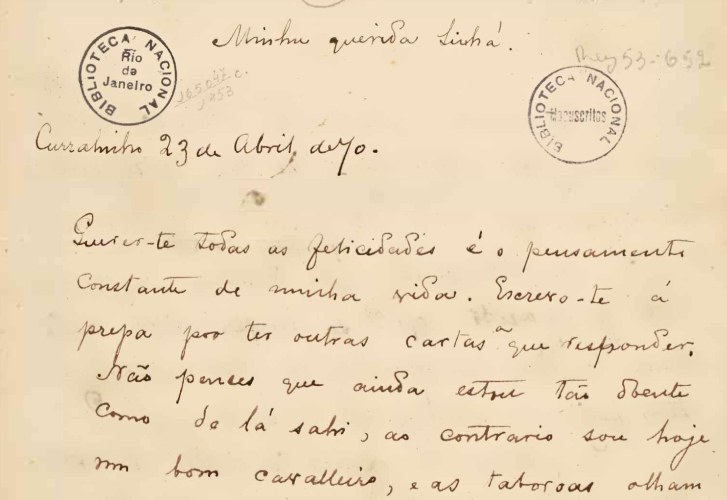 Minha querida Sinhá.
BIBLIOTECA NACIONAL
Rio de Janeiro
265.047.c.
1953
53-652
BIBLIOTECA NACIONAL
Manuscritos
Curralinho 23 de Abril de 70.
te todas as felicidades é o pensamento
constante de minha vida. Escrevo-te á
prepa por ter outras cartas a que responder.
Não penses que ainda estou tão doente
como de lá sahi, ao contrario sou hoje
um bom cavalleiro, e as taboroas olham